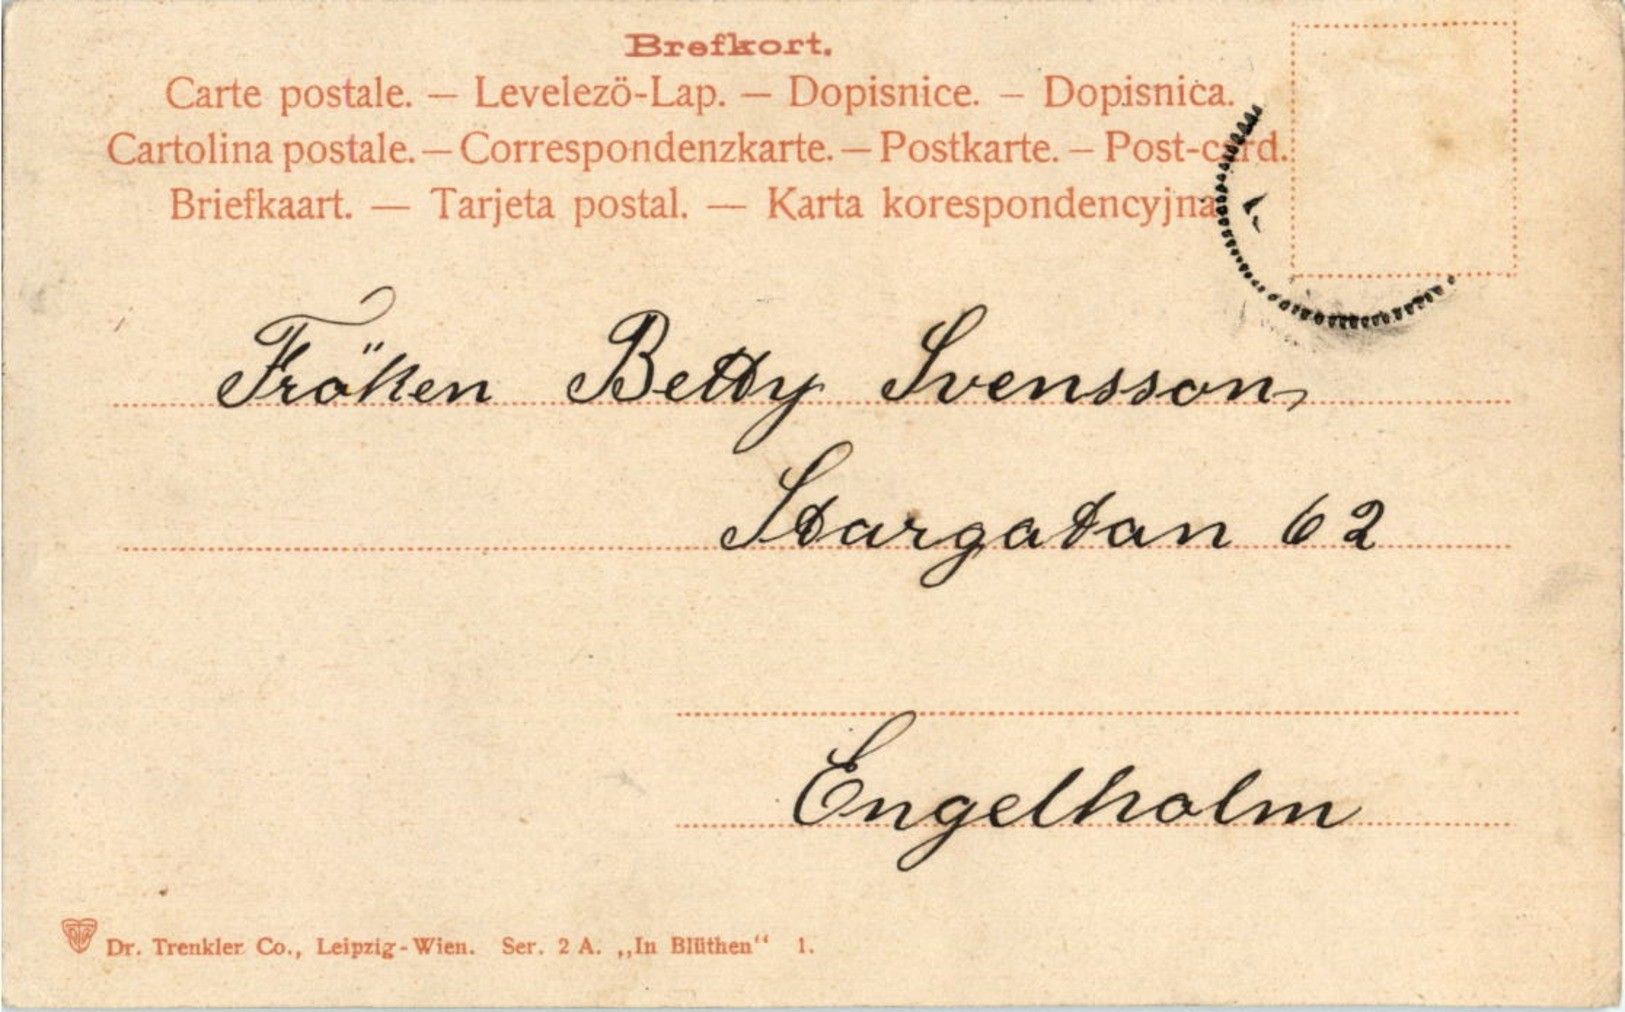 Brefkort.
Carte postale. — Levelezö-Lap. — Dopisnice. — Dopisnica.
Cartolina postale. — Correspondenzkarte. — Postkarte. — Post-card.
Briefkaart. — Tarjeta postal. — Karta korespondencyjna
Fröken Betty Svensson,
Storgatan 62
Engelholm
Dr. Trenkler Co., Leipzig-Wien. Ser. 2 A. „In Blüthen“ 1.